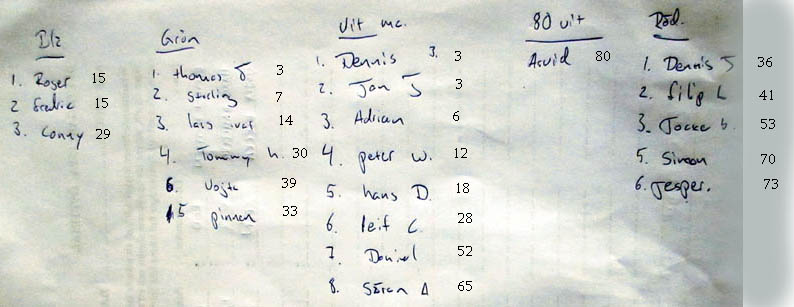 Blå
1. Roger 15
2 Fredric 15
3. Conny 29
Grön
1. thomas J 3
2. Starling 7
3. lars ivar 14
4. Tommy h. 30
6. 39
5 pinnen 33
Vit mc.
1. Dennis J. 3
2. Jan J 3
3. Adrian 6
4. peter w. 12
5. hans D. 18
6. leif C. 28
7. Daniel 52
8. Sören A 65
80 vit
Arvid 80
Röd.
1. Dennis J 36
2. filip L 41
3. Jocke b. 53
5. Simon 70
6. Jesper. 73